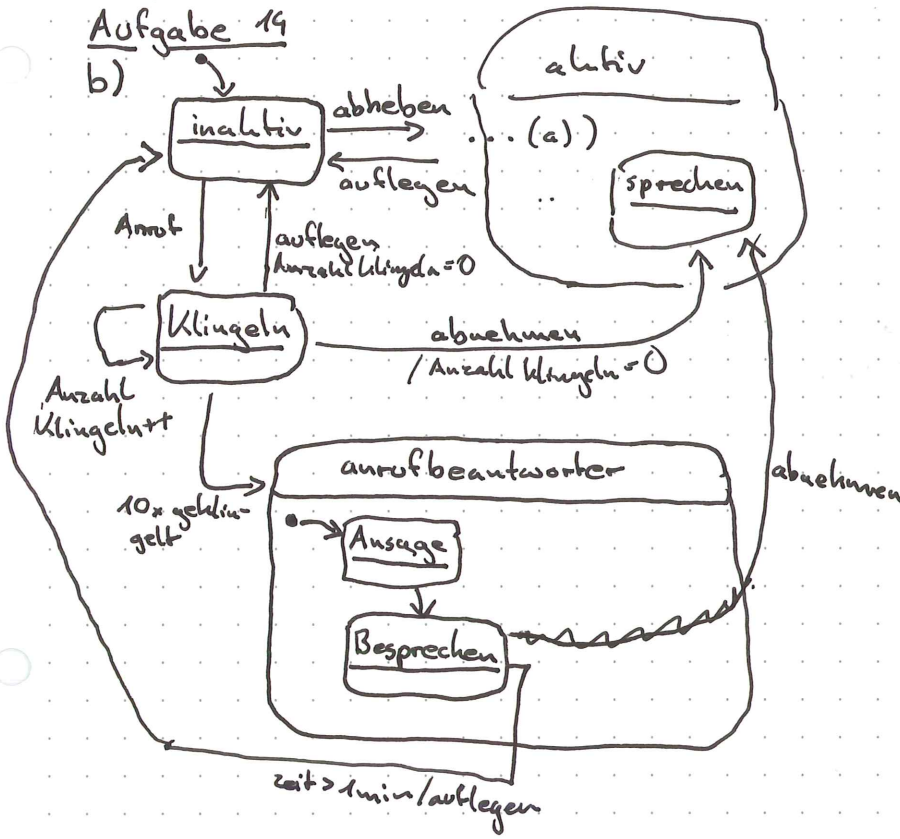 Aufgabe 14
b)
aktiv
inaktiv
abheben
... (a))
auflegen
..
sprechen
Anruf
auflegen
Anzahl klingeln=0
Klingeln
abnehmen
/Anzahl klingeln=0
Anzahl
Klingeln++
anrufbeantworter
abnehmen
10x geklin-
gelt
Ansage
Besprechen
zeit>1min/auflegen